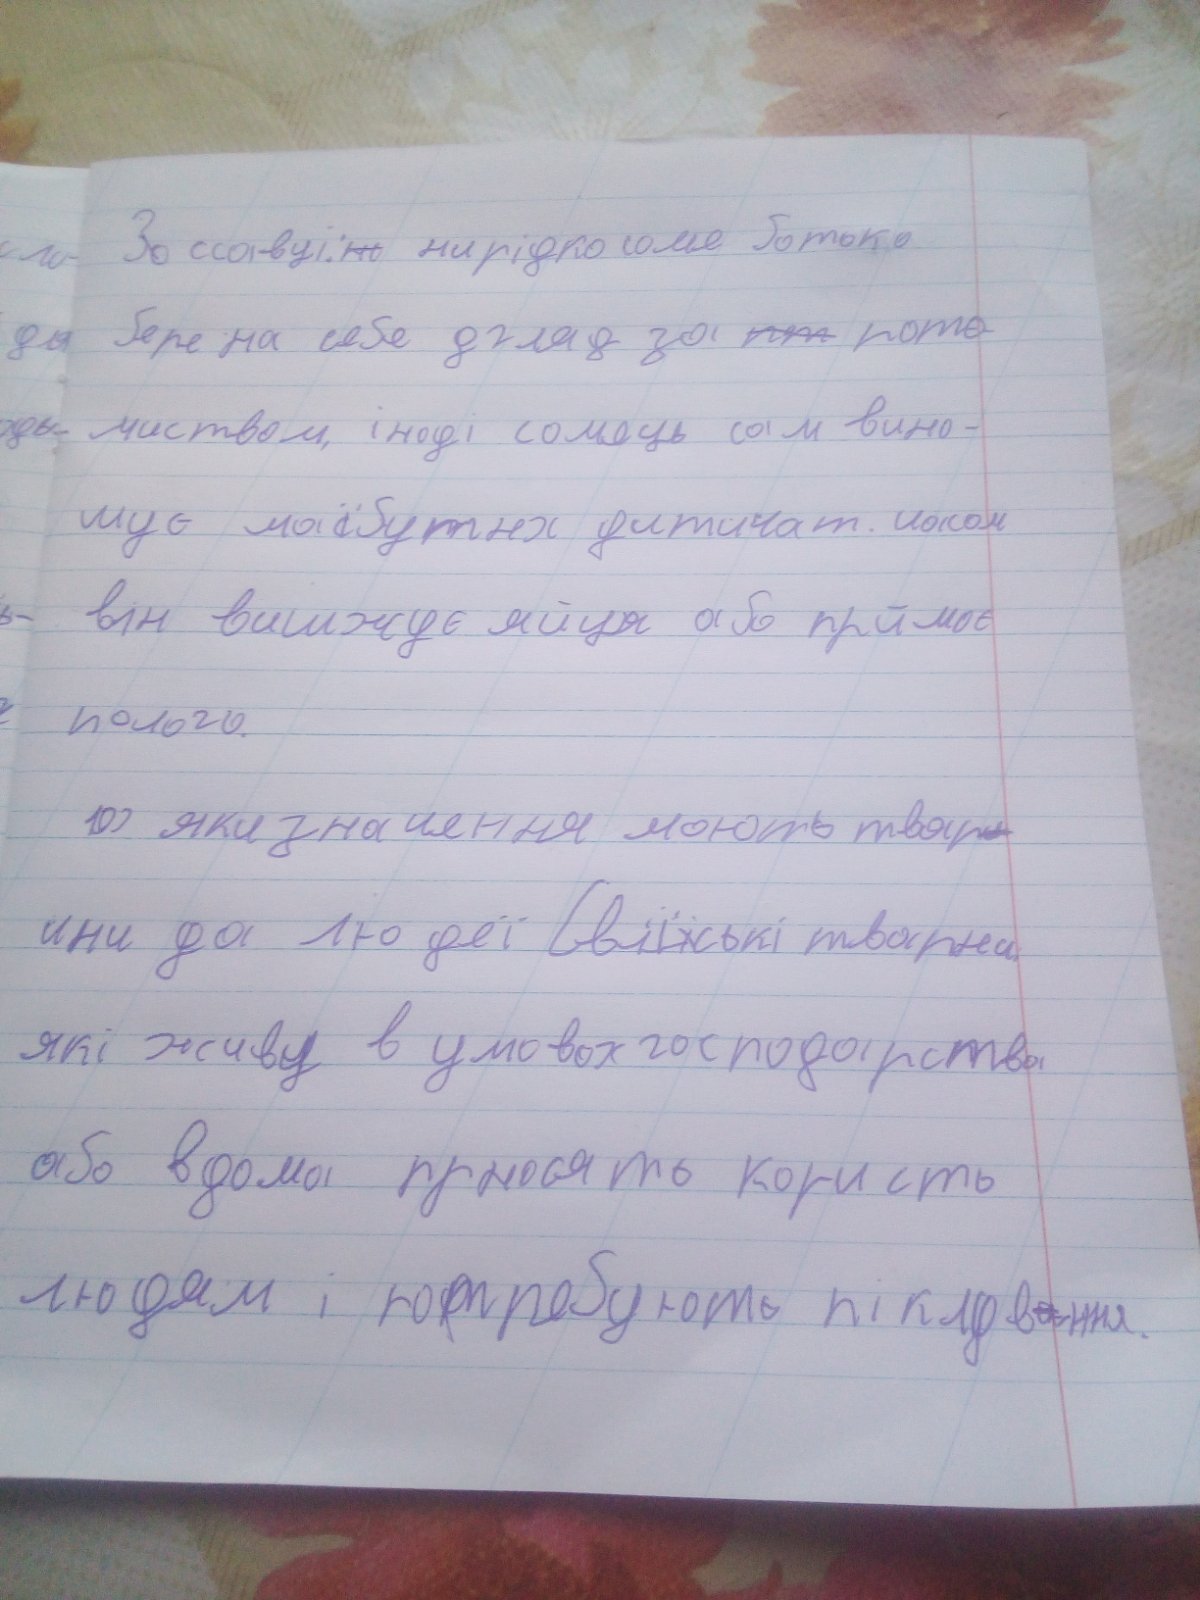 За ссавці нирідко саме батько
бере на себе дгляд за пото
миством, іноді сомець сам вино-
шує маїбутнх дитичат. часом
він вишжує яйця або прймає
пологи.
10) яки значення мають твар
ини да людеї (свіїські тварни
які живу в умовах господарства
або вдома прносять користь
людям і потребують піклування.